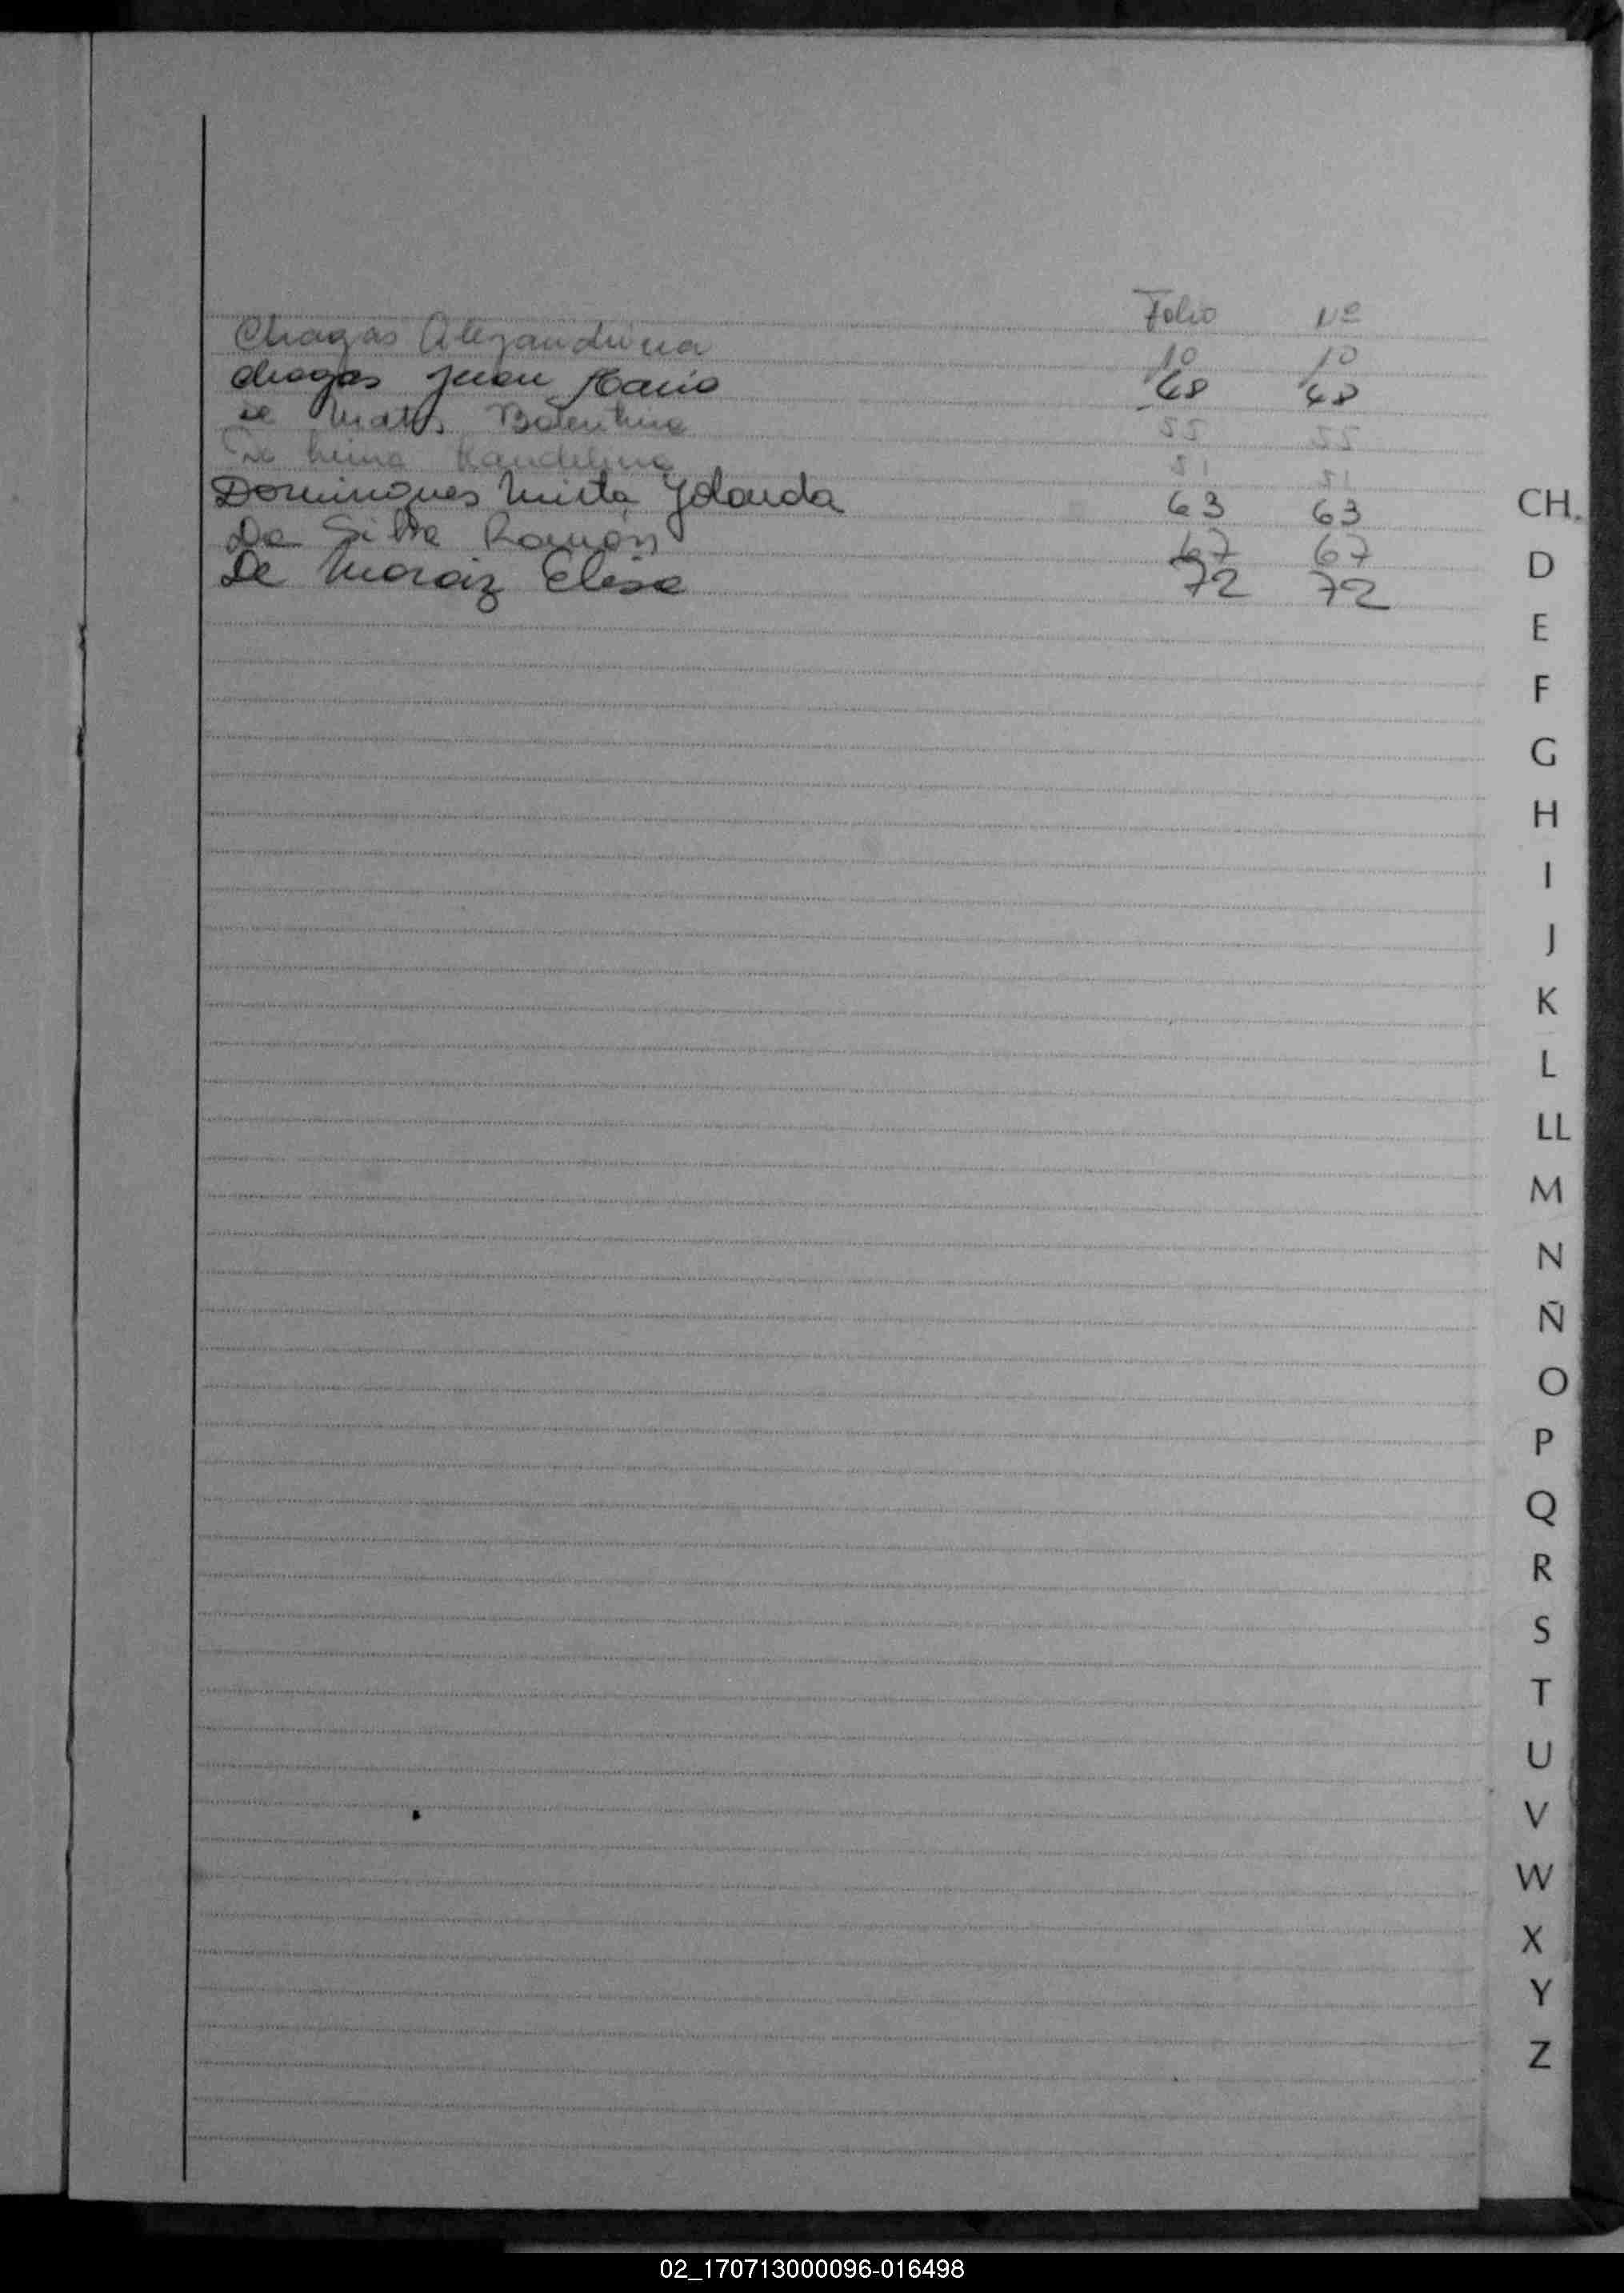 Folio Nº
Chagas Alejandrina 10 10
Chagas Juan Mario 48 48
de Matos Balentina 55 55
De Lima Kandelina 51 51
Domingues Mirta Yolanda 63 63
Da Silva Ramón 67 67
De Moraiz Elisa 72 72
CH.
D
E
F
G
H
I
J
K
L
LL
M
N
Ñ
O
P
Q
R
S
T
U
V
W
X
Y
Z
02_170713000096-016498